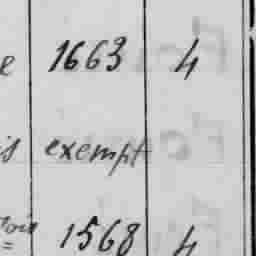 e 1663 4
is exempt
1568 4